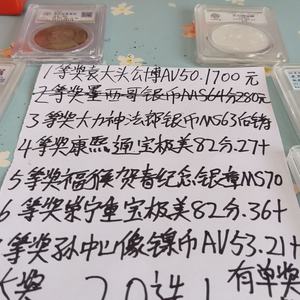 1等奖袁大头公博AV50.1700元
2等奖墨西哥银币MS64分280元
3等奖大力神法郎银币MS63
4等奖康熙通宝极美82分.27+
5等奖福猴贺春纪念银章MS70
6等奖崇宁重宝极美82分.36+
等奖孙中山像镍币AV53.21+
大奖 20选1 有单奖